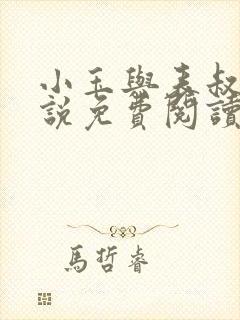 小玉與表叔
說免費閱讀
馬哲睿